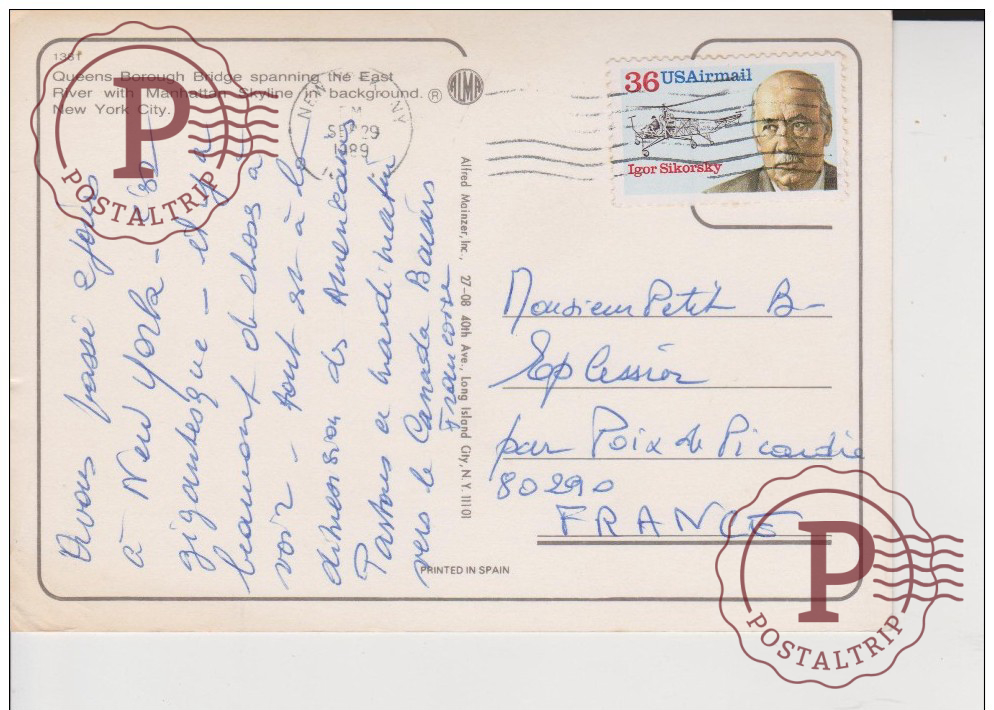 1381
Queens Borough Bridge spanning the East
River with Manhattan Skyline in background.
New York City.
® ALMA
NEW YORK NY
SEP 29
1989
36 USAirmail
Igor Sikorsky
Avons passé 2 jours
à New York - 
gigantesque - il y a
beaucoup de choses à
voir - tout est à la
dimension des Américains
Partons ce mardi matin
vers le Canada Baisers
Françoise
Alfred Mainzer, Inc., 27-08 40th Ave., Long Island City, N.Y. 11101
Monsieur Petit B-
Eplessier
par Poix de Picardie
80290
FRANCE
PRINTED IN SPAIN
P
POSTALTRIP
P
POSTALTRIP